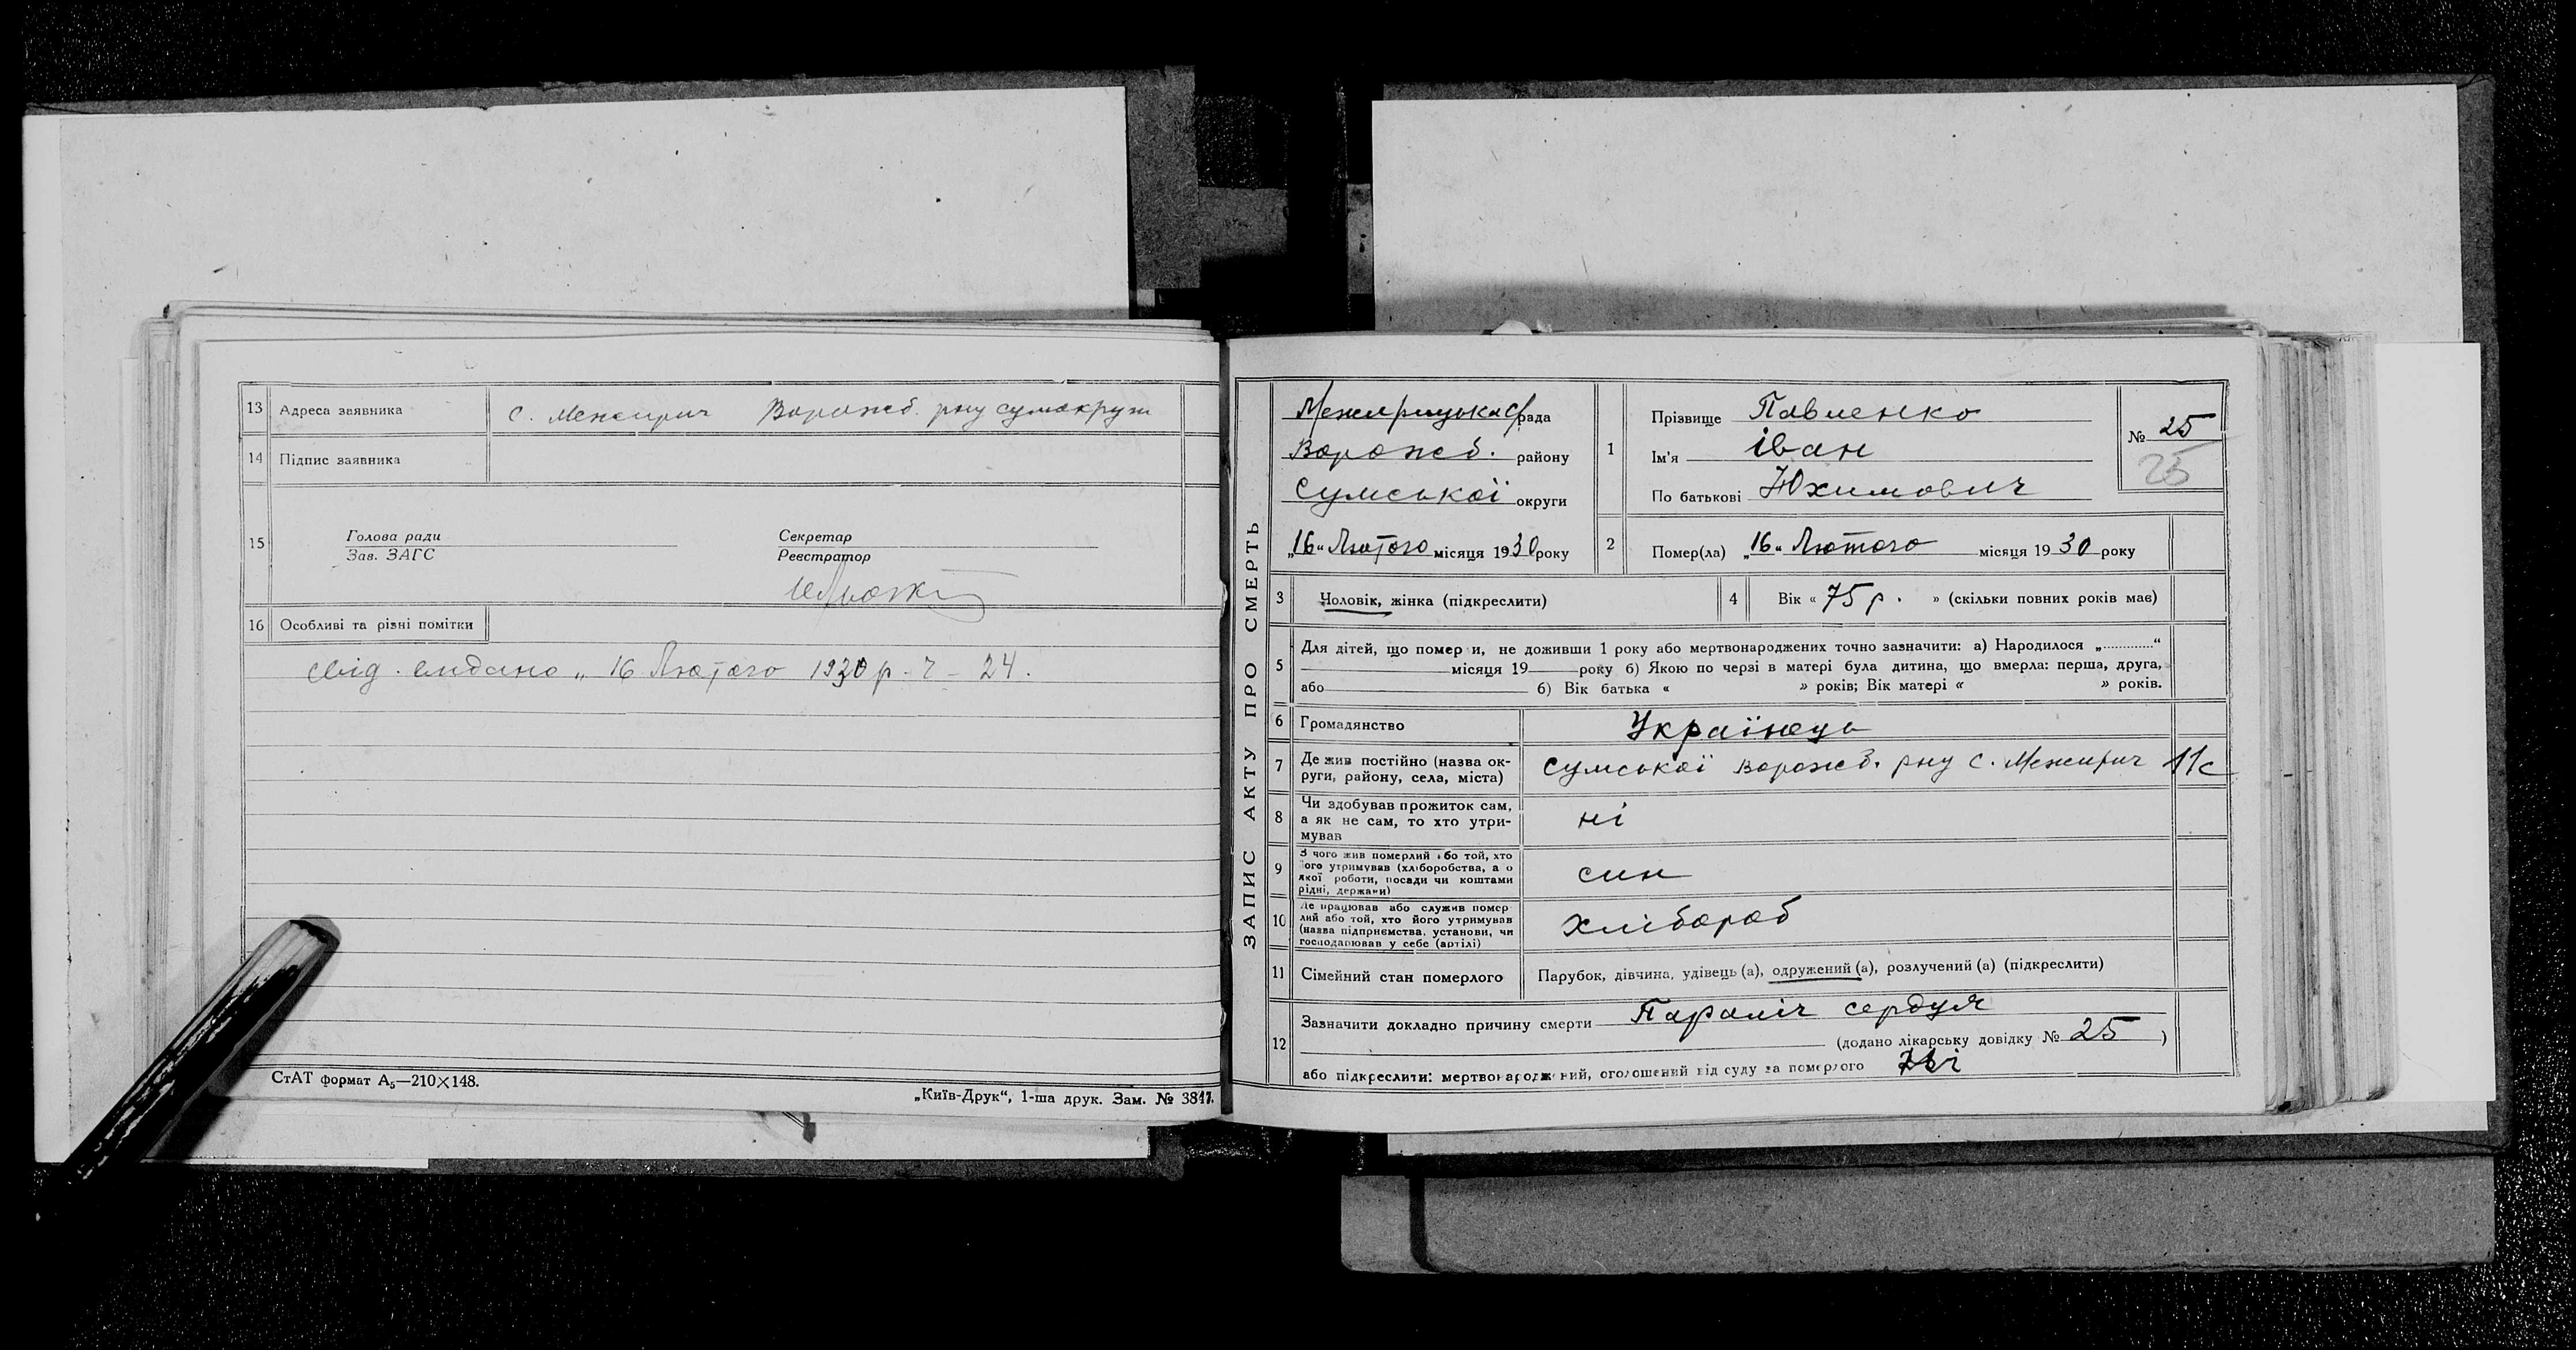 13 Адреса заявника с. Межирич Ворожб. рну сумокруги
14 Підпис заявника
15 Голова ради Секретар
Зав. ЗАГС Реєстратор
16 Особливі та різні помітки
свід. видано „ 16 Лютого 1930 р. ч - 24.
СтАТ формат А₅—210×148.
„Київ-Друк“, 1-ша друк. Зам. № 3817.
ЗАПИС АКТУ ПРО СМЕРТЬ
Межирицька с/рада
Ворожб. району
Сумської округи
„16“ Лютого місяця 1930 року
1 Прізвище Павленко
Ім'я іван
По батькові Юхимович
№ 25
25
2 Помер(ла) „16“ Лютого місяця 1930 року
3 Чоловік, жінка (підкреслити)
4 Вік « 75 р. » (скільки повних років має)
5 Для дітей, що помер и, не доживши 1 року або мертвонароджених точно зазначити: а) Народилося „............“
місяця 19 року б) Якою по черзі в матері була дитина, що вмерла: перша, друга,
або б) Вік батька « » років; Вік матері « » років.
6 Громадянство Українець
7 Де жив постійно (назва ок-
руги, району, села, міста) Сумської Ворожб. рну с. Межирич 11с
8 Чи здобував прожиток сам,
а як не сам, то хто утри-
мував ні
9 З чого жив померлий або той, хто
його утримував (хліборобства, а о
якої роботи, посади чи коштами
рідні, держави) син
10 Де працював або служив помер
лий або той, хто його утримував
(назва підприємства, установи, чи
господарював у себе (артілі) Хлібороб
11 Сімейний стан померлого Парубок, дівчина, удівець (а), одружений (а), розлучений (а) (підкреслити)
12 Зазначити докладно причину смерти Параліч сердця
(додано лікарську довідку № 25 )
або підкреслити: мертвонароджений, оголошений від суду за померлого